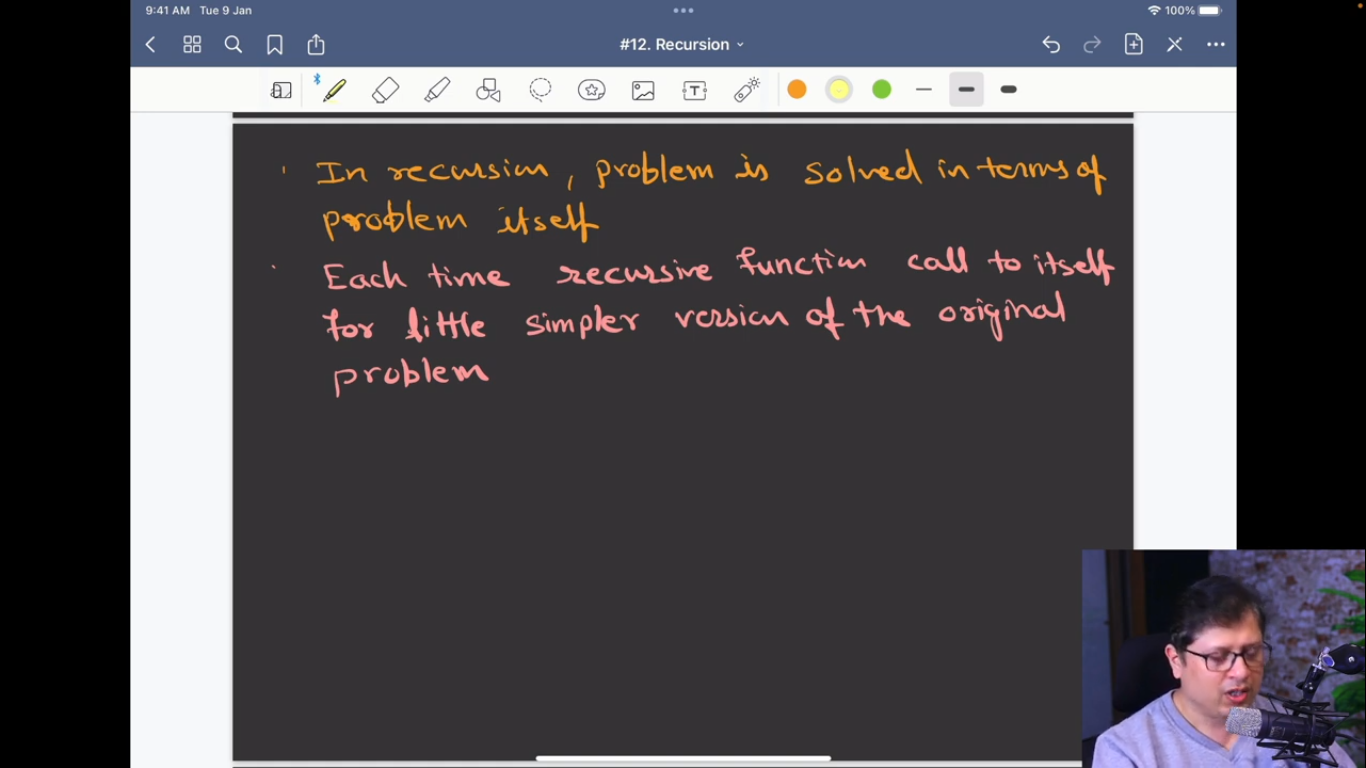 9:41 AM Tue 9 Jan
100%
#12. Recursion
T
In recursion, problem is solved in terms of
problem itself
Each time recursive function call to itself
for little simpler version of the original
problem